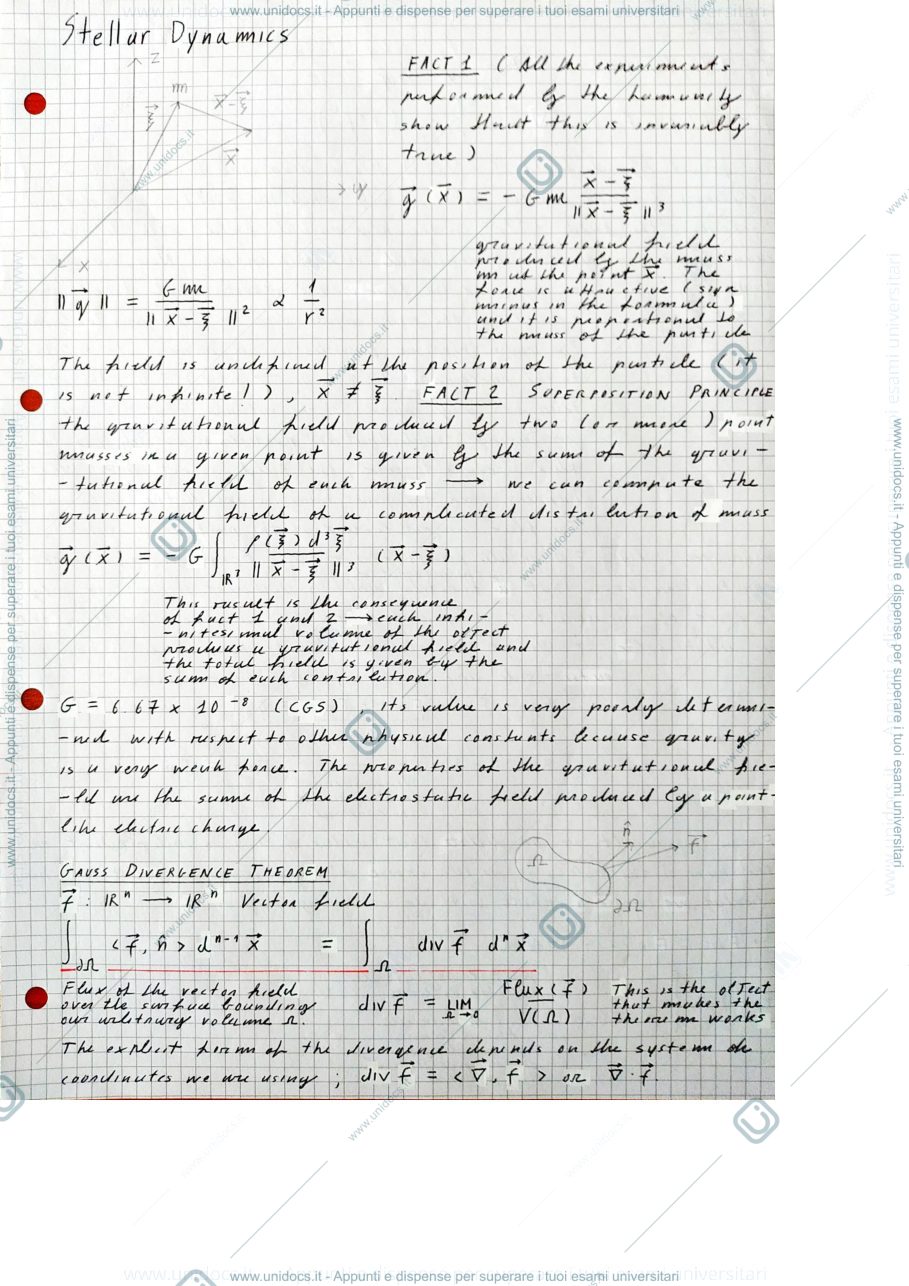 www.unidocs.it - Appunti e dispense per superare i tuoi esami universitari
Stellar Dynamics
z
m
ξ⃗
x⃗-ξ⃗
x⃗
y
x
FACT 1 ( All the experiments
performed by the humanity
show that this is invariably
true )
g⃗ (x⃗) = - G m (x⃗ - ξ⃗) / || x⃗ - ξ⃗ ||³
gravitational field
produced by the mass
m at the point x⃗. The
force is attractive (sign
minus in the formula)
and it is proportional to
the mass of the particle
|| g⃗ || = G m / || x⃗ - ξ⃗ ||² ∝ 1 / r²
The field is undefined at the position of the particle ( it
is not infinite ! ) , x⃗ ≠ ξ⃗. FACT 2 SUPERPOSITION PRINCIPLE
the gravitational field produced by two ( or more ) point
masses in a given point is given by the sum of the gravi -
- tational field of each mass ⟶ we can compute the
gravitational field of a complicated distribution of mass
g⃗ (x⃗) = - G ∫_ℝ³ ρ(ξ⃗) d³ξ⃗ / || x⃗ - ξ⃗ ||³ ( x⃗ - ξ⃗ )
This result is the consequence
of fact 1 and 2 → each infi -
- nitesimal volume of the object
produces a gravitational field and
the total field is given by the
sum of each contribution.
G = 6.67 x 10⁻⁸ (CGS) , its value is very poorly determi-
-ned with respect to other physical constants because gravity
is a very weak force. The properties of the gravitational fie-
-ld are the same of the electrostatic field produced by a point-
like electric charge.
Ω
n̂
f⃗
∂Ω
GAUSS DIVERGENCE THEOREM
f⃗ : ℝⁿ ⟶ ℝⁿ Vector field
∫_∂Ω < f⃗, n̂ > dⁿ⁻¹ x⃗ = ∫_Ω div f⃗ dⁿ x⃗
Flux of the vector field
over the surface bounding
our arbitrary volume Ω.
div f⃗ = LIM_Ω→0 Flux (f⃗) / V(Ω)
This is the object
that makes the
theorem works
The explicit form of the divergence depends on the system of
coordinates we are using ; div f⃗ = < ∇⃗, f⃗ > or ∇⃗ · f⃗.
www.unidocs.it - Appunti e dispense per superare i tuoi esami universitari